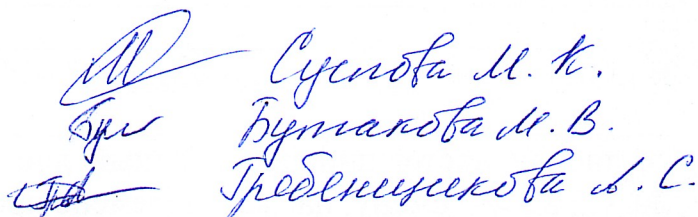 Суслова М. К.
Бут Бутакова М. В.
Гребенщикова А. С.